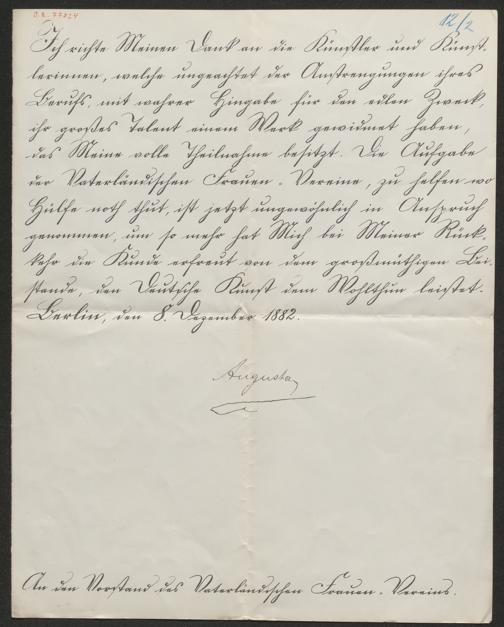 12/2
Ich richte Meinen Dank an die Künstler und Künst-
lerinnen, welche ungeachtet der Anstrengungen ihres
Berufs, mit wahrer Hingabe für den edlen Zweck,
ihr großes Talent einem Werk gewidmet haben,
das Meine volle Theilnahme besitzt. Die Aufgabe
der Vaterländischen Frauen-Vereine, zu helfen wo
Hülfe noth thut, ist jetzt ungewöhnlich in Anspruch
genommen, um so mehr hat Mich bei Meiner Rück-
kehr die Kunde erfreut von dem großmüthigen Bei-
stande, den Deutsche Kunst dem Wohlthun leistet.
Berlin, den 8. Dezember 1882.
Augusta
An den Vorstand des Vaterländischen Frauen-Vereins.